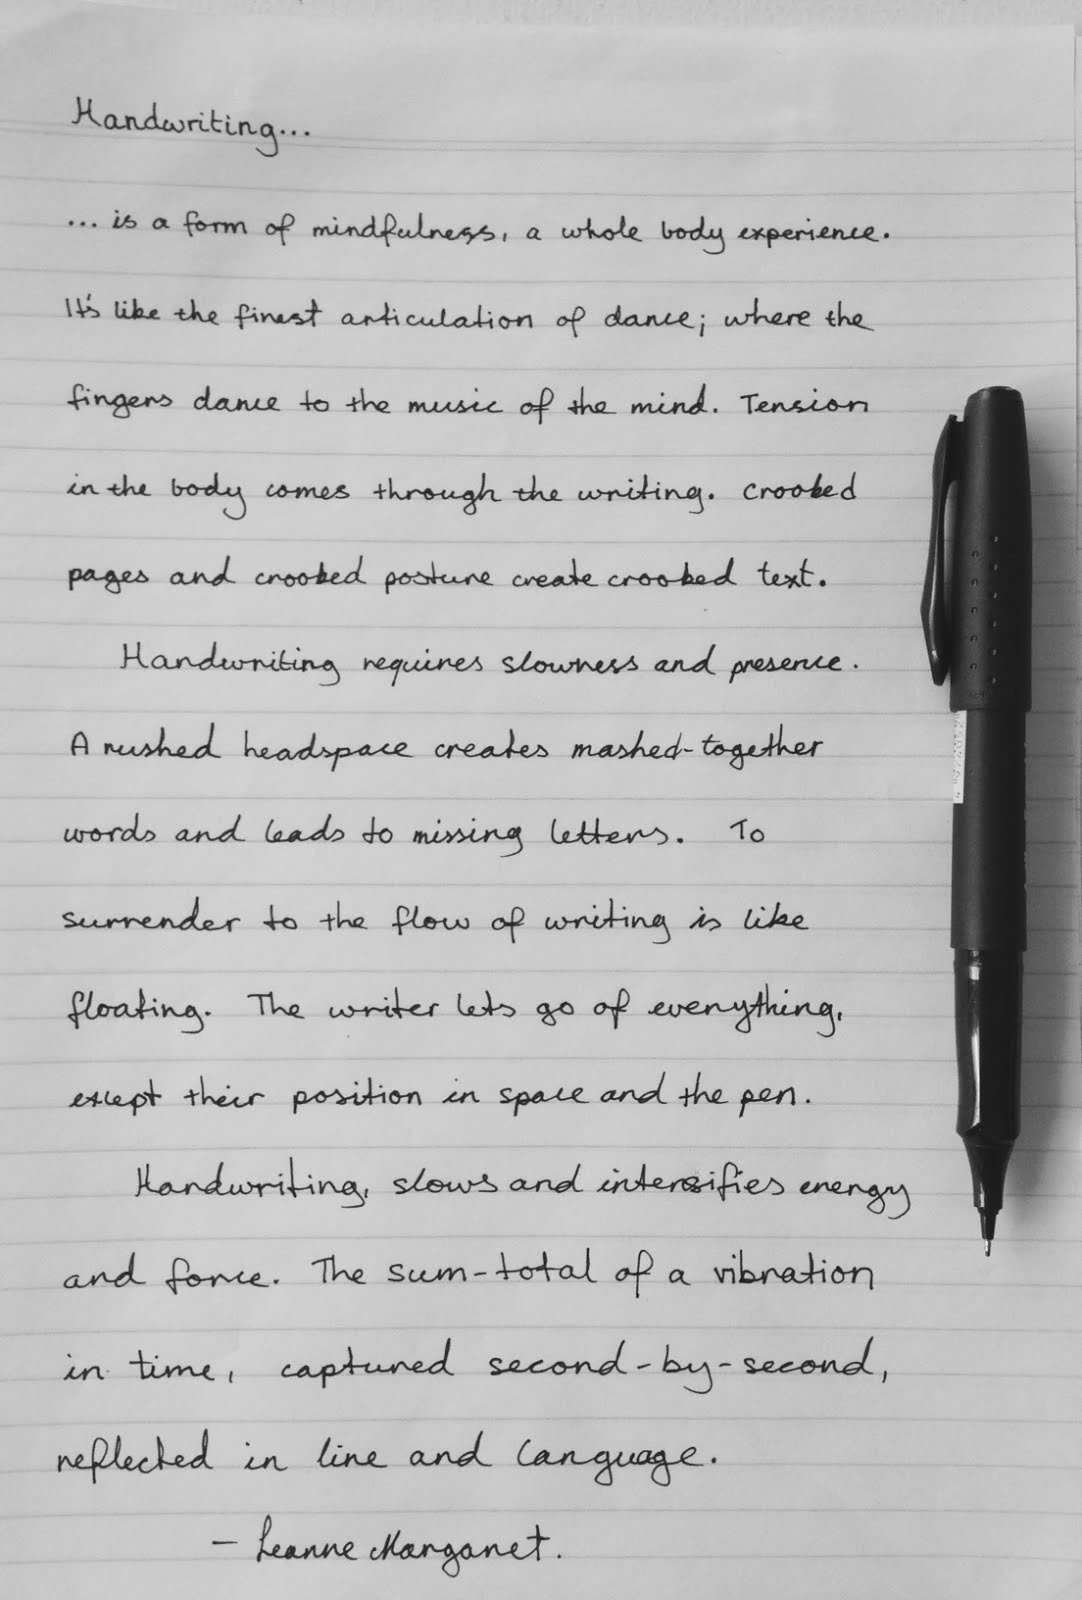 Handwriting...
... is a form of mindfulness, a whole body experience.
It's like the finest articulation of dance; where the
fingers dance to the music of the mind. Tension
in the body comes through the writing. Crooked
pages and crooked posture create crooked text.
Handwriting requires slowness and presence.
A rushed headspace creates mashed-together
words and leads to missing letters. To
surrender to the flow of writing is like
floating. The writer lets go of everything,
except their position in space and the pen.
Handwriting, slows and intensifies energy
and force. The sum-total of a vibration
in time, captured second-by-second,
reflected in line and language.
- Leanne Margaret.